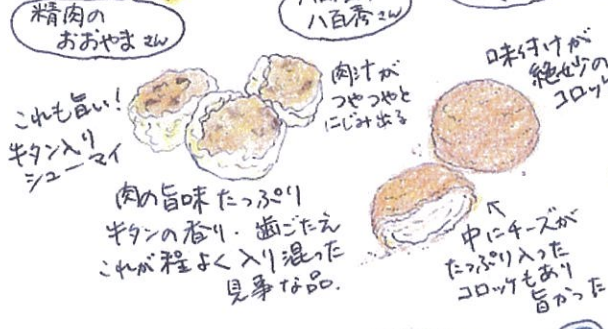 精肉の
おおやまさん
八百秀さん
これも旨い!
牛タン入り
シューマイ
肉汁が
つやつやと
にじみ出る
肉の旨味たっぷり
牛タンの香り・歯ごたえ
これが程よく入り混った
見事な品。
味付けが
絶妙の
コロッケ
中にチーズが
たっぷり入った
コロッケもあり
旨かった